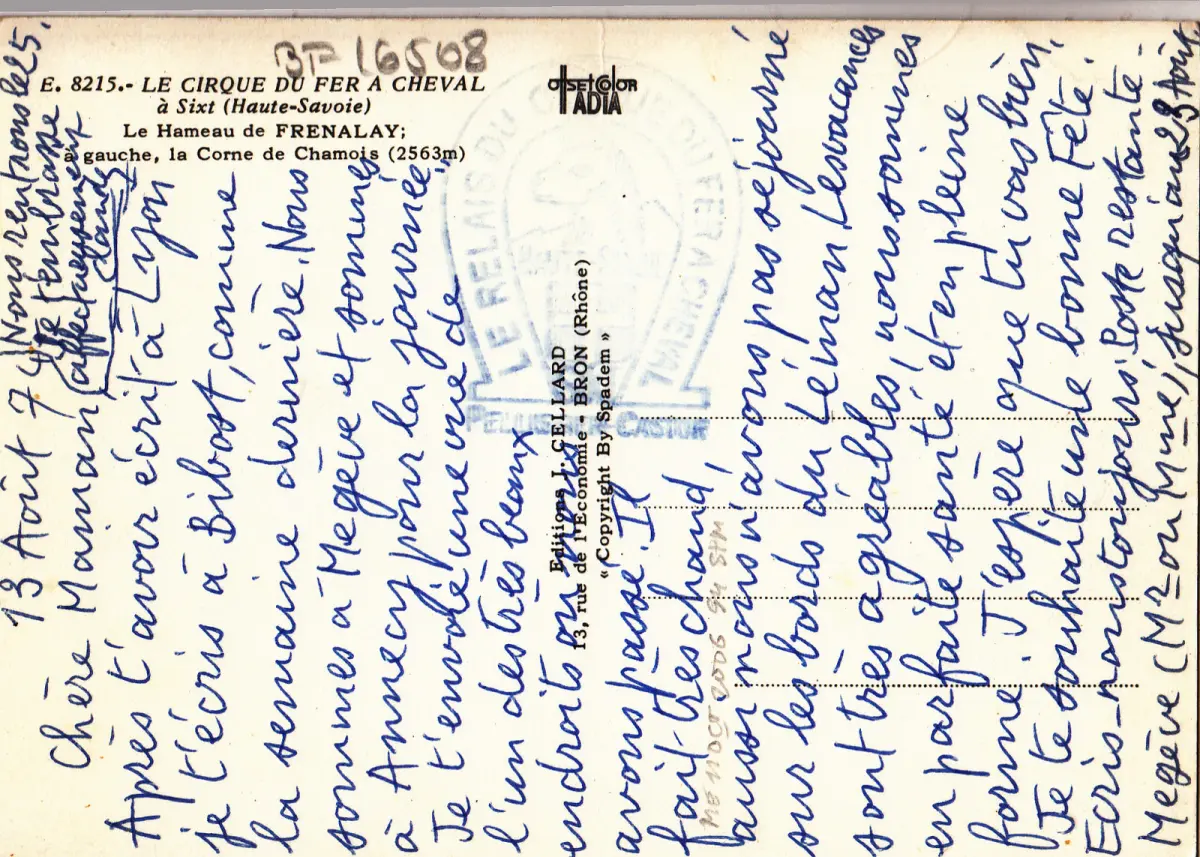 BF 16508
E. 8215.- LE CIRQUE DU FER A CHEVAL
à Sixt (Haute-Savoie)
Le Hameau de FRENALAY;
à gauche, la Corne de Chamois (2563m)
OFFSETCOLOR
ADIA
LE RELAIS DU FER A CHEVAL
PELLISSIER-CASTOR
Editions J. CELLARD
13, rue de l'Economie - BRON (Rhône)
« Copyright By Spadem »
13 Août 74
Chère Maman
Après t'avoir écrit à Lyon
je t'écris à Bibost, comme
la semaine dernière. Nous
sommes à Megève et sommes
à Annecy pour la journée.
Je t'envoie une vue de
l'un des très beaux
endroits où nous
avons passé. Il
fait très chaud,
aussi nous n'avons pas séjourné
sur les bords du Léman. Les vacances
sont très agréables, nous sommes
en parfaite santé et en pleine
forme. J'espère que tu vas bien.
Je te souhaite une bonne Fête.
Ecris-nous toujours Poste restante
Megève (Mr ou Mme), jusqu'au 23 Août
Nous rentrons le 25.
Je t'embrasse
affectueusement